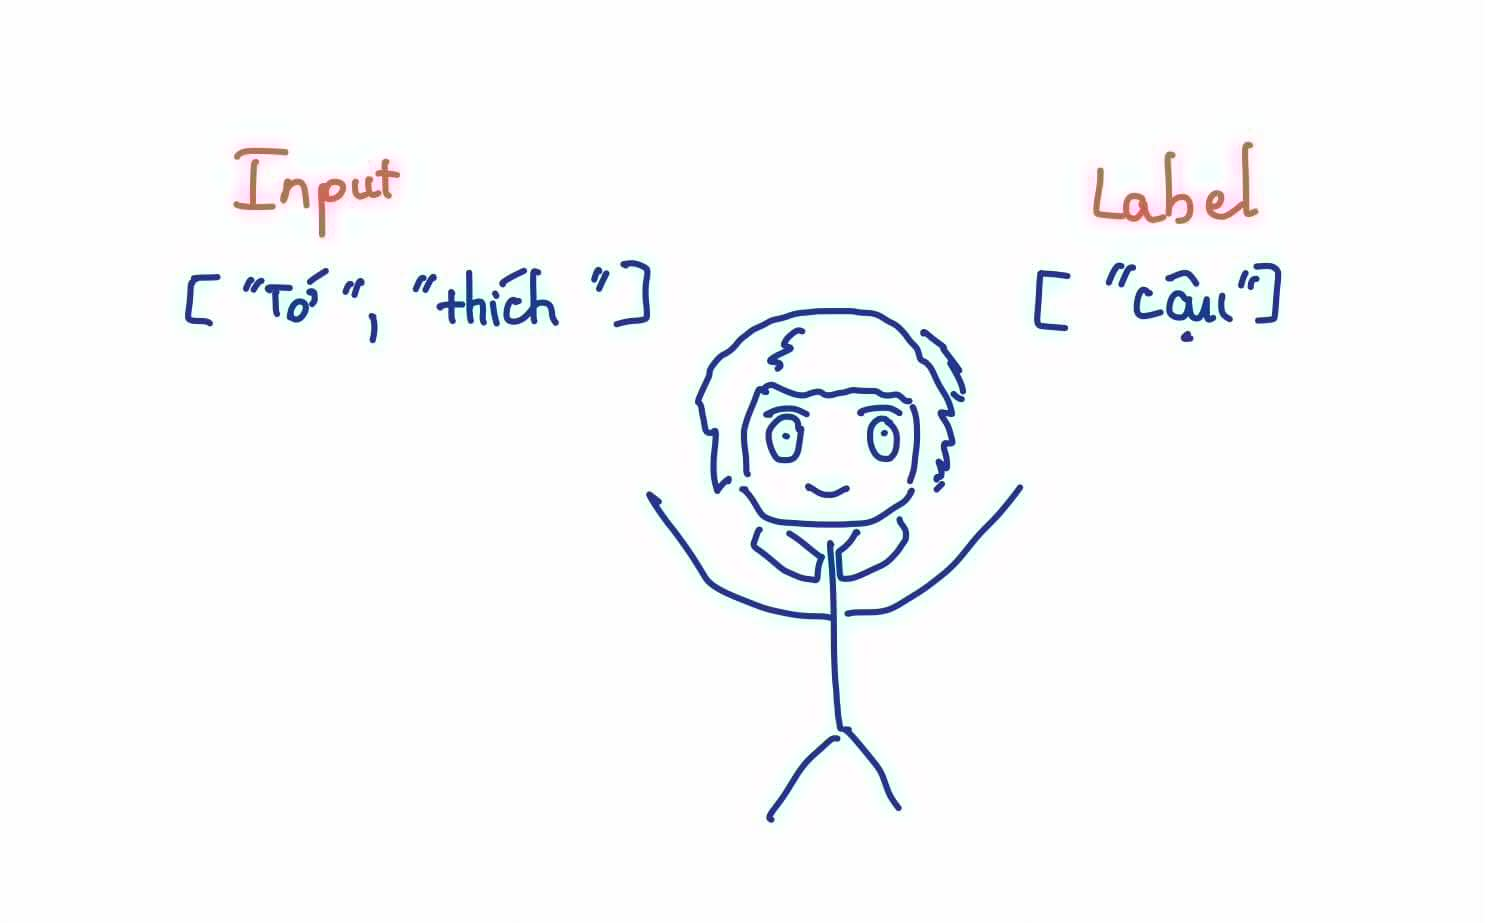 Input
["Tớ", "thích"]
Label
["cậu"]